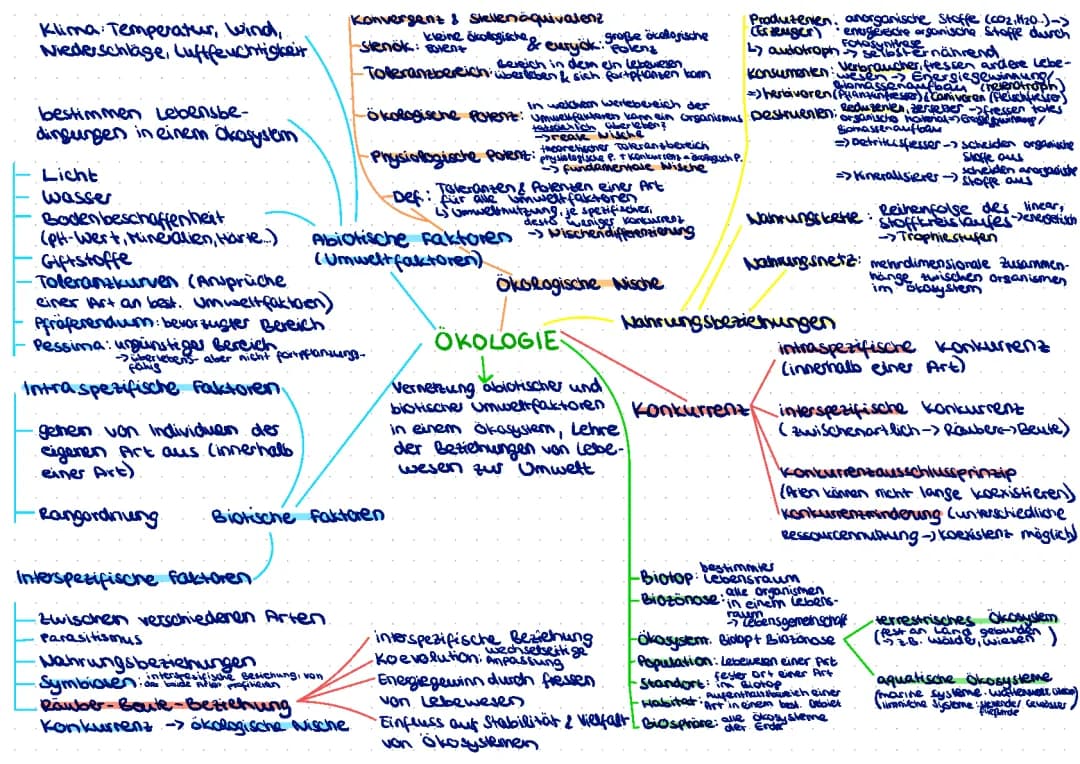 Klima: Temperatur, Wind,
Niederschläge, Luftfeuchtigkeit
bestimmen Lebensbe-
dingungen in einem Ökosystem
Licht
Wasser
Bodenbeschaffenheit
(pH-Wert, Mineralien, Härte...)
Giftstoffe
Toleranzkurven (Ansprüche
einer Art an best. Umweltfaktoren)
Präferendum: bevorzugter Bereich
Pessima: ungünstiger Bereich
→ überlebens- aber nicht fortpflanzungs-
fähig
Abiotische Faktoren
(Umweltfaktoren)
Konvergenz & Stellenäquivalenz
Stenök: kleine ökologische Potenz & euryök: große ökologische Potenz
Toleranzbereich: Bereich in dem ein Lebewesen
überleben & sich fortpflanzen kann
Ökologische Potenz: In welchem Wertebereich der
Umweltfaktoren kann ein Organismus
tatsächlich überleben?
→ reale Nische
Physiologische Potenz: theoretischer Toleranzbereich
physiologische P. + Konkurrenz = ökologisch P.
→ fundamentale Nische
Def.: Toleranzen & Potenzen einer Art
für alle Umweltfaktoren
↳ Umweltnutzung, je spezifischer,
desto weniger Konkurrenz
→ Nischendifferenzierung
Ökologische Nische
Produzenten: anorganische Stoffe (CO2, H2O..) →
(Erzeuger) energiereiche organische Stoffe durch
Fotosynthese
↳ autotroph → selbsternährend
Konsumenten: Verbraucher, fressen andere Lebe-
wesen → Energiegewinnung/
Biomassenaufbau (heterotroph)
⇒ herbivoren (Pflanzenfresser) & Carnivoren (Fleischfresser)
Destruenten: Reduzenten, Zersetzer → fressen totes
organische Material → Energiegewinnung/
Biomassenaufbau
⇒ Detritusfresser → scheiden organische
Stoffe aus
⇒ Mineralisierer → scheiden anorganische
Stoffe aus
Nahrungskette: Reihenfolge des linear,
Stoffkreislaufes → energetisch
→ Trophiestufen
Nahrungsnetz: mehrdimensionale Zusammen-
hänge zwischen Organismen
im Ökosystem
Nahrungsbeziehungen
ÖKOLOGIE
Vernetzung abiotischer und
biotischer Umweltfaktoren
in einem Ökosystem, Lehre
der Beziehungen von Lebe-
wesen zur Umwelt
Konkurrenz
intraspezifische Konkurrenz
(innerhalb einer Art)
interspezifische Konkurrenz
(zwischenartlich → Räuber → Beute)
Konkurrenzausschlussprinzip
(Arten können nicht lange koexistieren)
Konkurrenzminderung (unterschiedliche
Ressourcennutzung → Koexistenz möglich)
Intraspezifische Faktoren
gehen von Individuen der
eigenen Art aus (innerhalb
einer Art)
Rangordnung
Biotische Faktoren
Interspezifische Faktoren
zwischen verschiedenen Arten
Parasitismus
Nahrungsbeziehungen
Symbiosen: interspezifische Beziehung, von
der beide Arten profitieren
Räuber-Beute-Beziehung
Konkurrenz → ökologische Nische
interspezifische Beziehung
Koevolution: wechselseitige Anpassung
Energiegewinn durch fressen
von Lebewesen
Einfluss auf Stabilität & Vielfalt
von Ökosystemen
Biotop: bestimmter Lebensraum
Biozönose: alle Organismen
in einem Lebens-
raum
→ Lebensgemeinschaft
Ökosystem: Biotop + Biozönose
Population: Lebewesen einer Art
Standort: fester Ort einer Art
im Biotop
Habitat: Aufenthaltsbereich einer
Art in einem best. Gebiet
Biosphäre: alle Ökosysteme
der Erde
terrestrisches Ökosystem
(fest an Land gebunden
→ z.B. Wälder, Wiesen)
aquatische Ökosysteme
(marine Systeme:
(limnische Systeme: stehende/ Gewässer
fließende